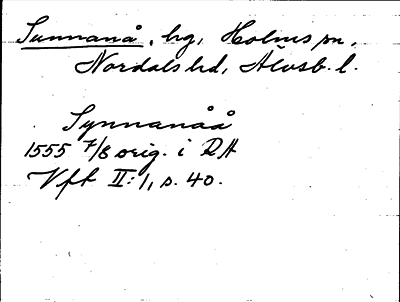 Sunnanå, hg, Holms sn,
Nordals hd, Älvsb. l.
Synnanåå
1555 7/8 orig. i RA
Vft II:1, s. 40.